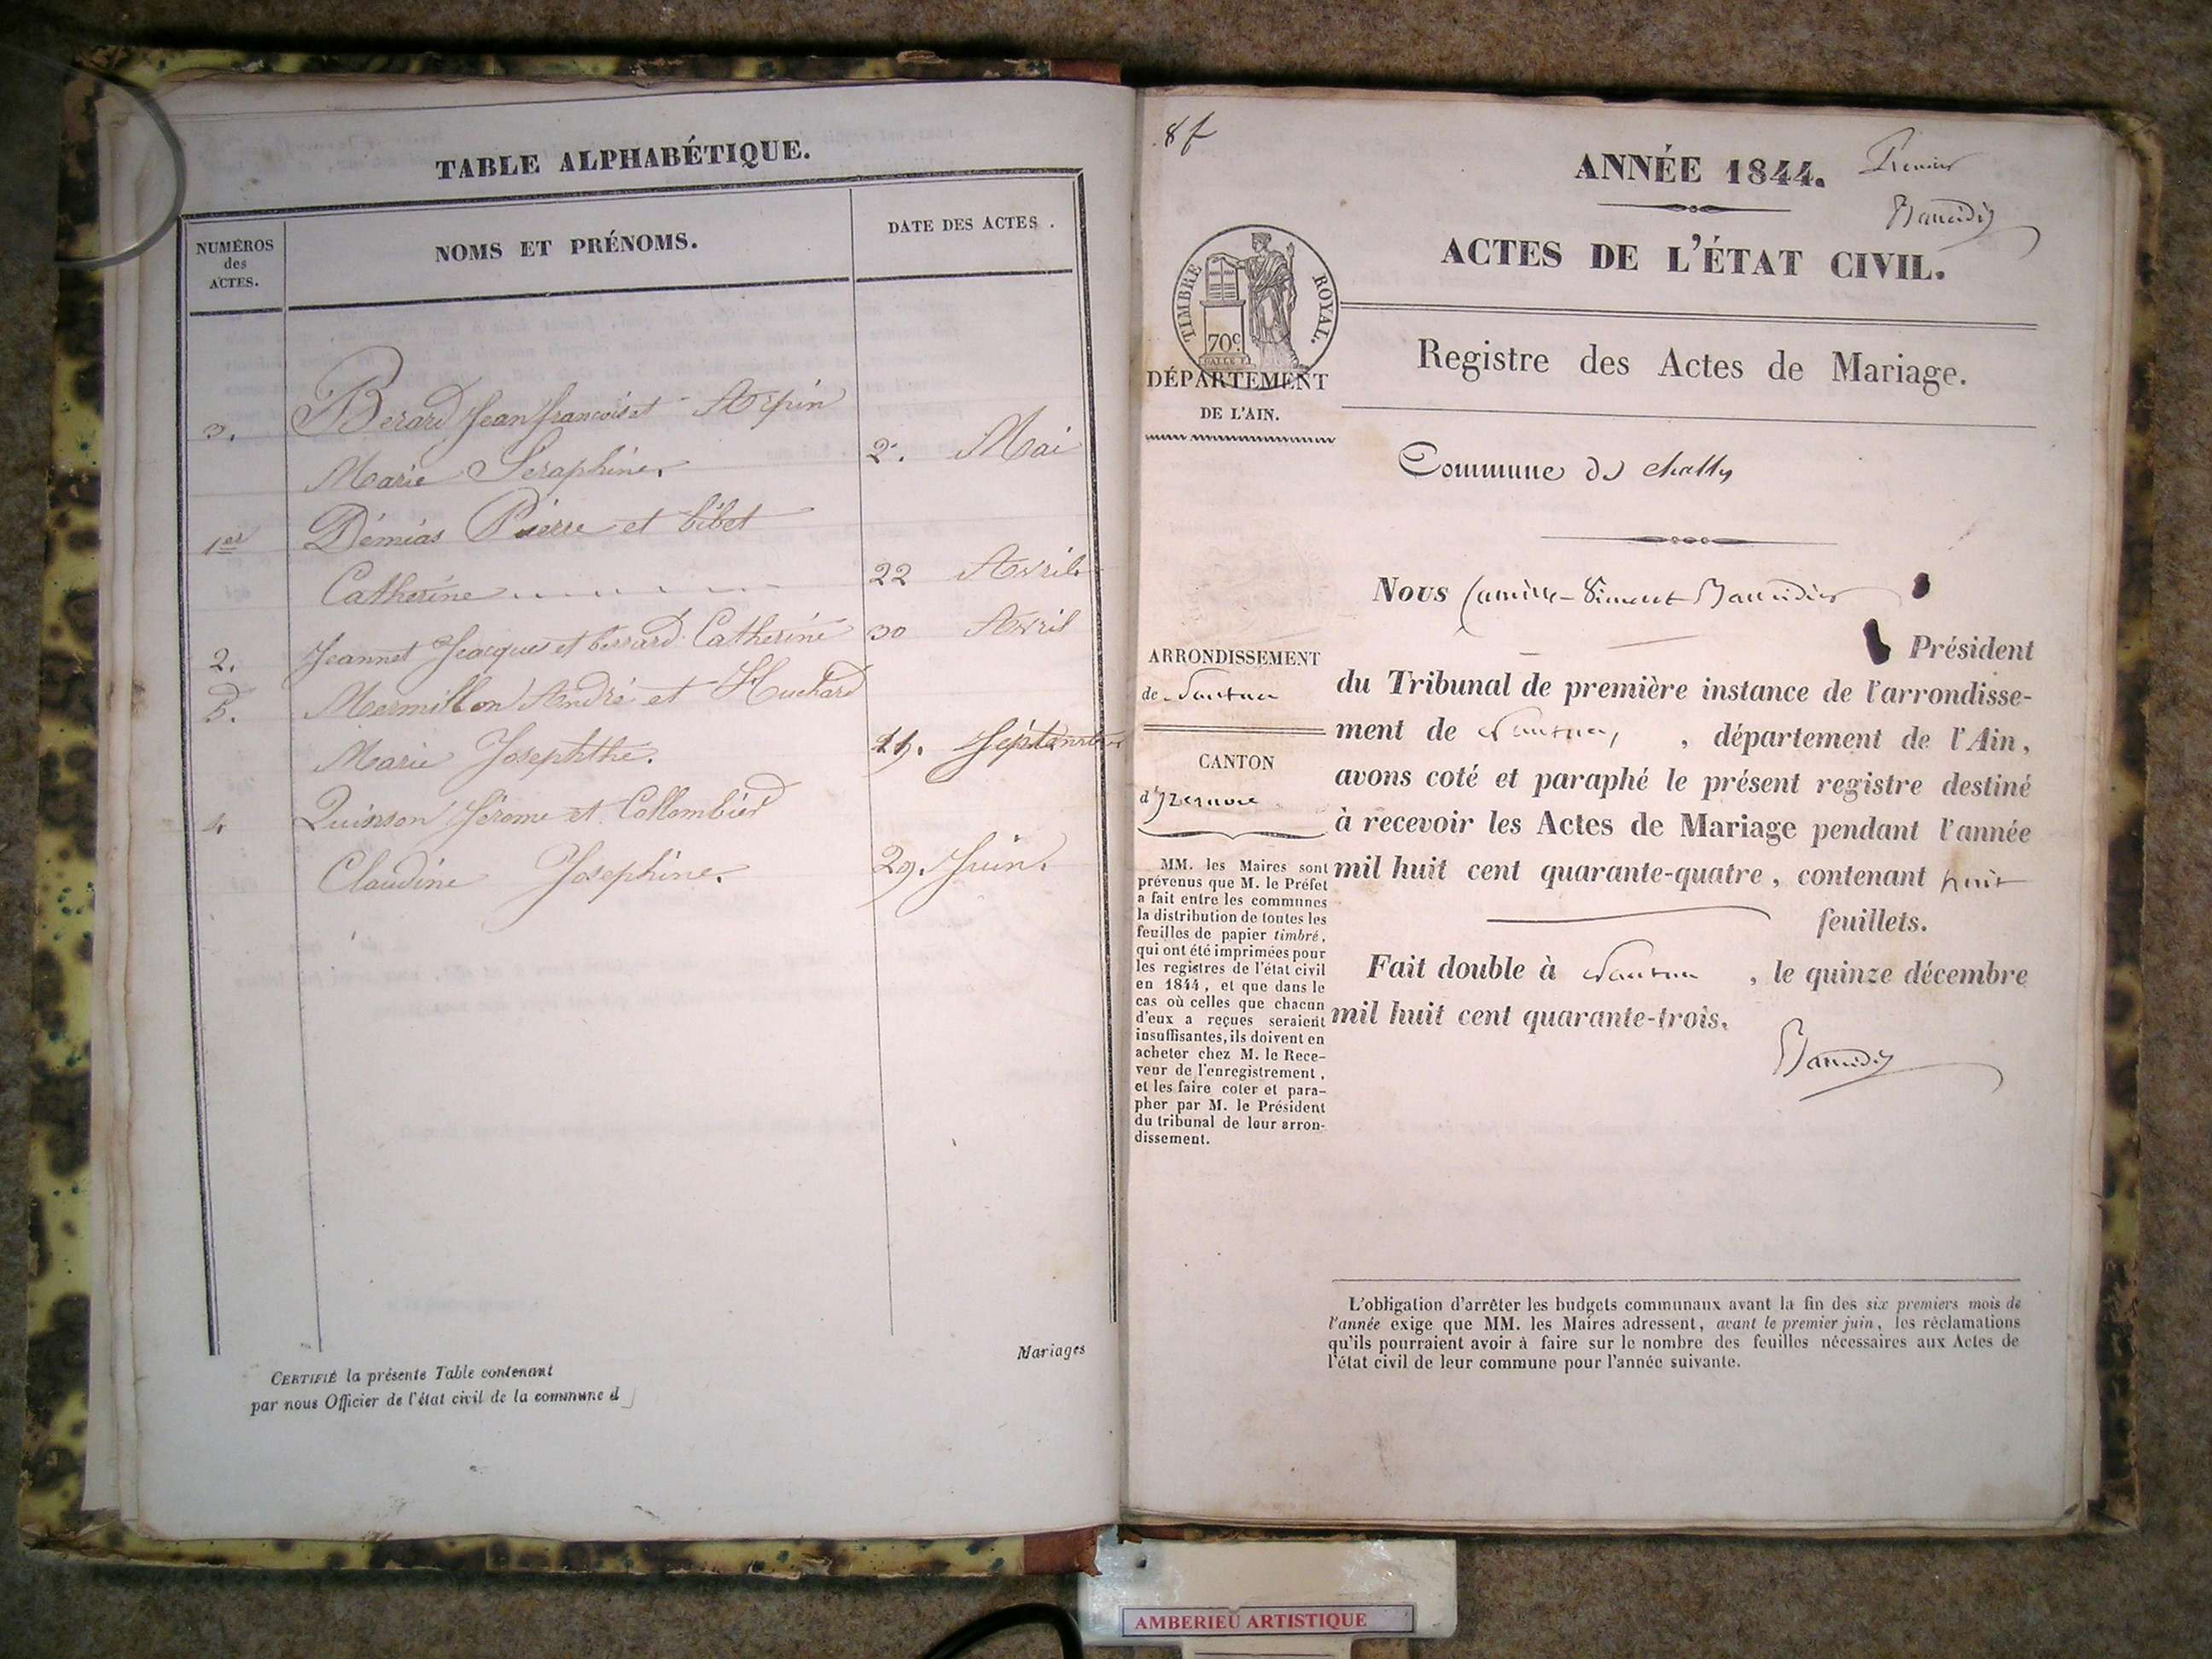 TABLE ALPHABÉTIQUE.
NUMÉROS
des
ACTES.
NOMS ET PRÉNOMS.
DATE DES ACTES.
3. Berard Jean françois et Arpin
Marie Séraphine. 2. Mai
1er Démias Pierre et
Catherine 22 Avril
2. Jeannet Jacques et Catherine 30 Avril
5. Mermillon André et Huchard
Marie Josephthe. 11. Septembre
4 Quinson Jérome et Collombier
Claudine Josephine. 29. Juin.
CERTIFIÉ la présente Table contenant
par nous Officier de l'état civil de la commune d
Mariages
8 f
ANNÉE 1844.
Premier
ACTES DE L'ÉTAT CIVIL.
TIMBRE ROYAL.
70c.
Registre des Actes de Mariage.
DÉPARTEMENT
DE L'AIN.
Commune de
Nous
Président
ARRONDISSEMENT
de Nantua
CANTON
d'Izernore
du Tribunal de première instance de l'arrondisse-
ment de Nantua, département de l'Ain,
avons coté et paraphé le présent registre destiné
à recevoir les Actes de Mariage pendant l'année
mil huit cent quarante-quatre, contenant huit
feuillets.
Fait double à Nantua, le quinze décembre
mil huit cent quarante-trois.
MM. les Maires sont
prévenus que M. le Préfet
a fait entre les communes
la distribution de toutes les
feuilles de papier timbré,
qui ont été imprimées pour
les registres de l'état civil
en 1844, et que dans le
cas où celles que chacun
d'eux a reçues seraient
insuffisantes, ils doivent en
acheter chez M. le Rece-
veur de l'enregistrement,
et les faire coter et para-
pher par M. le Président
du tribunal de leur arron-
dissement.
L'obligation d'arrêter les budgets communaux avant la fin des six premiers mois de
l'année exige que MM. les Maires adressent, avant le premier juin, les réclamations
qu'ils pourraient avoir à faire sur le nombre des feuilles nécessaires aux Actes de
l'état civil de leur commune pour l'année suivante.
AMBERIEU ARTISTIQUE